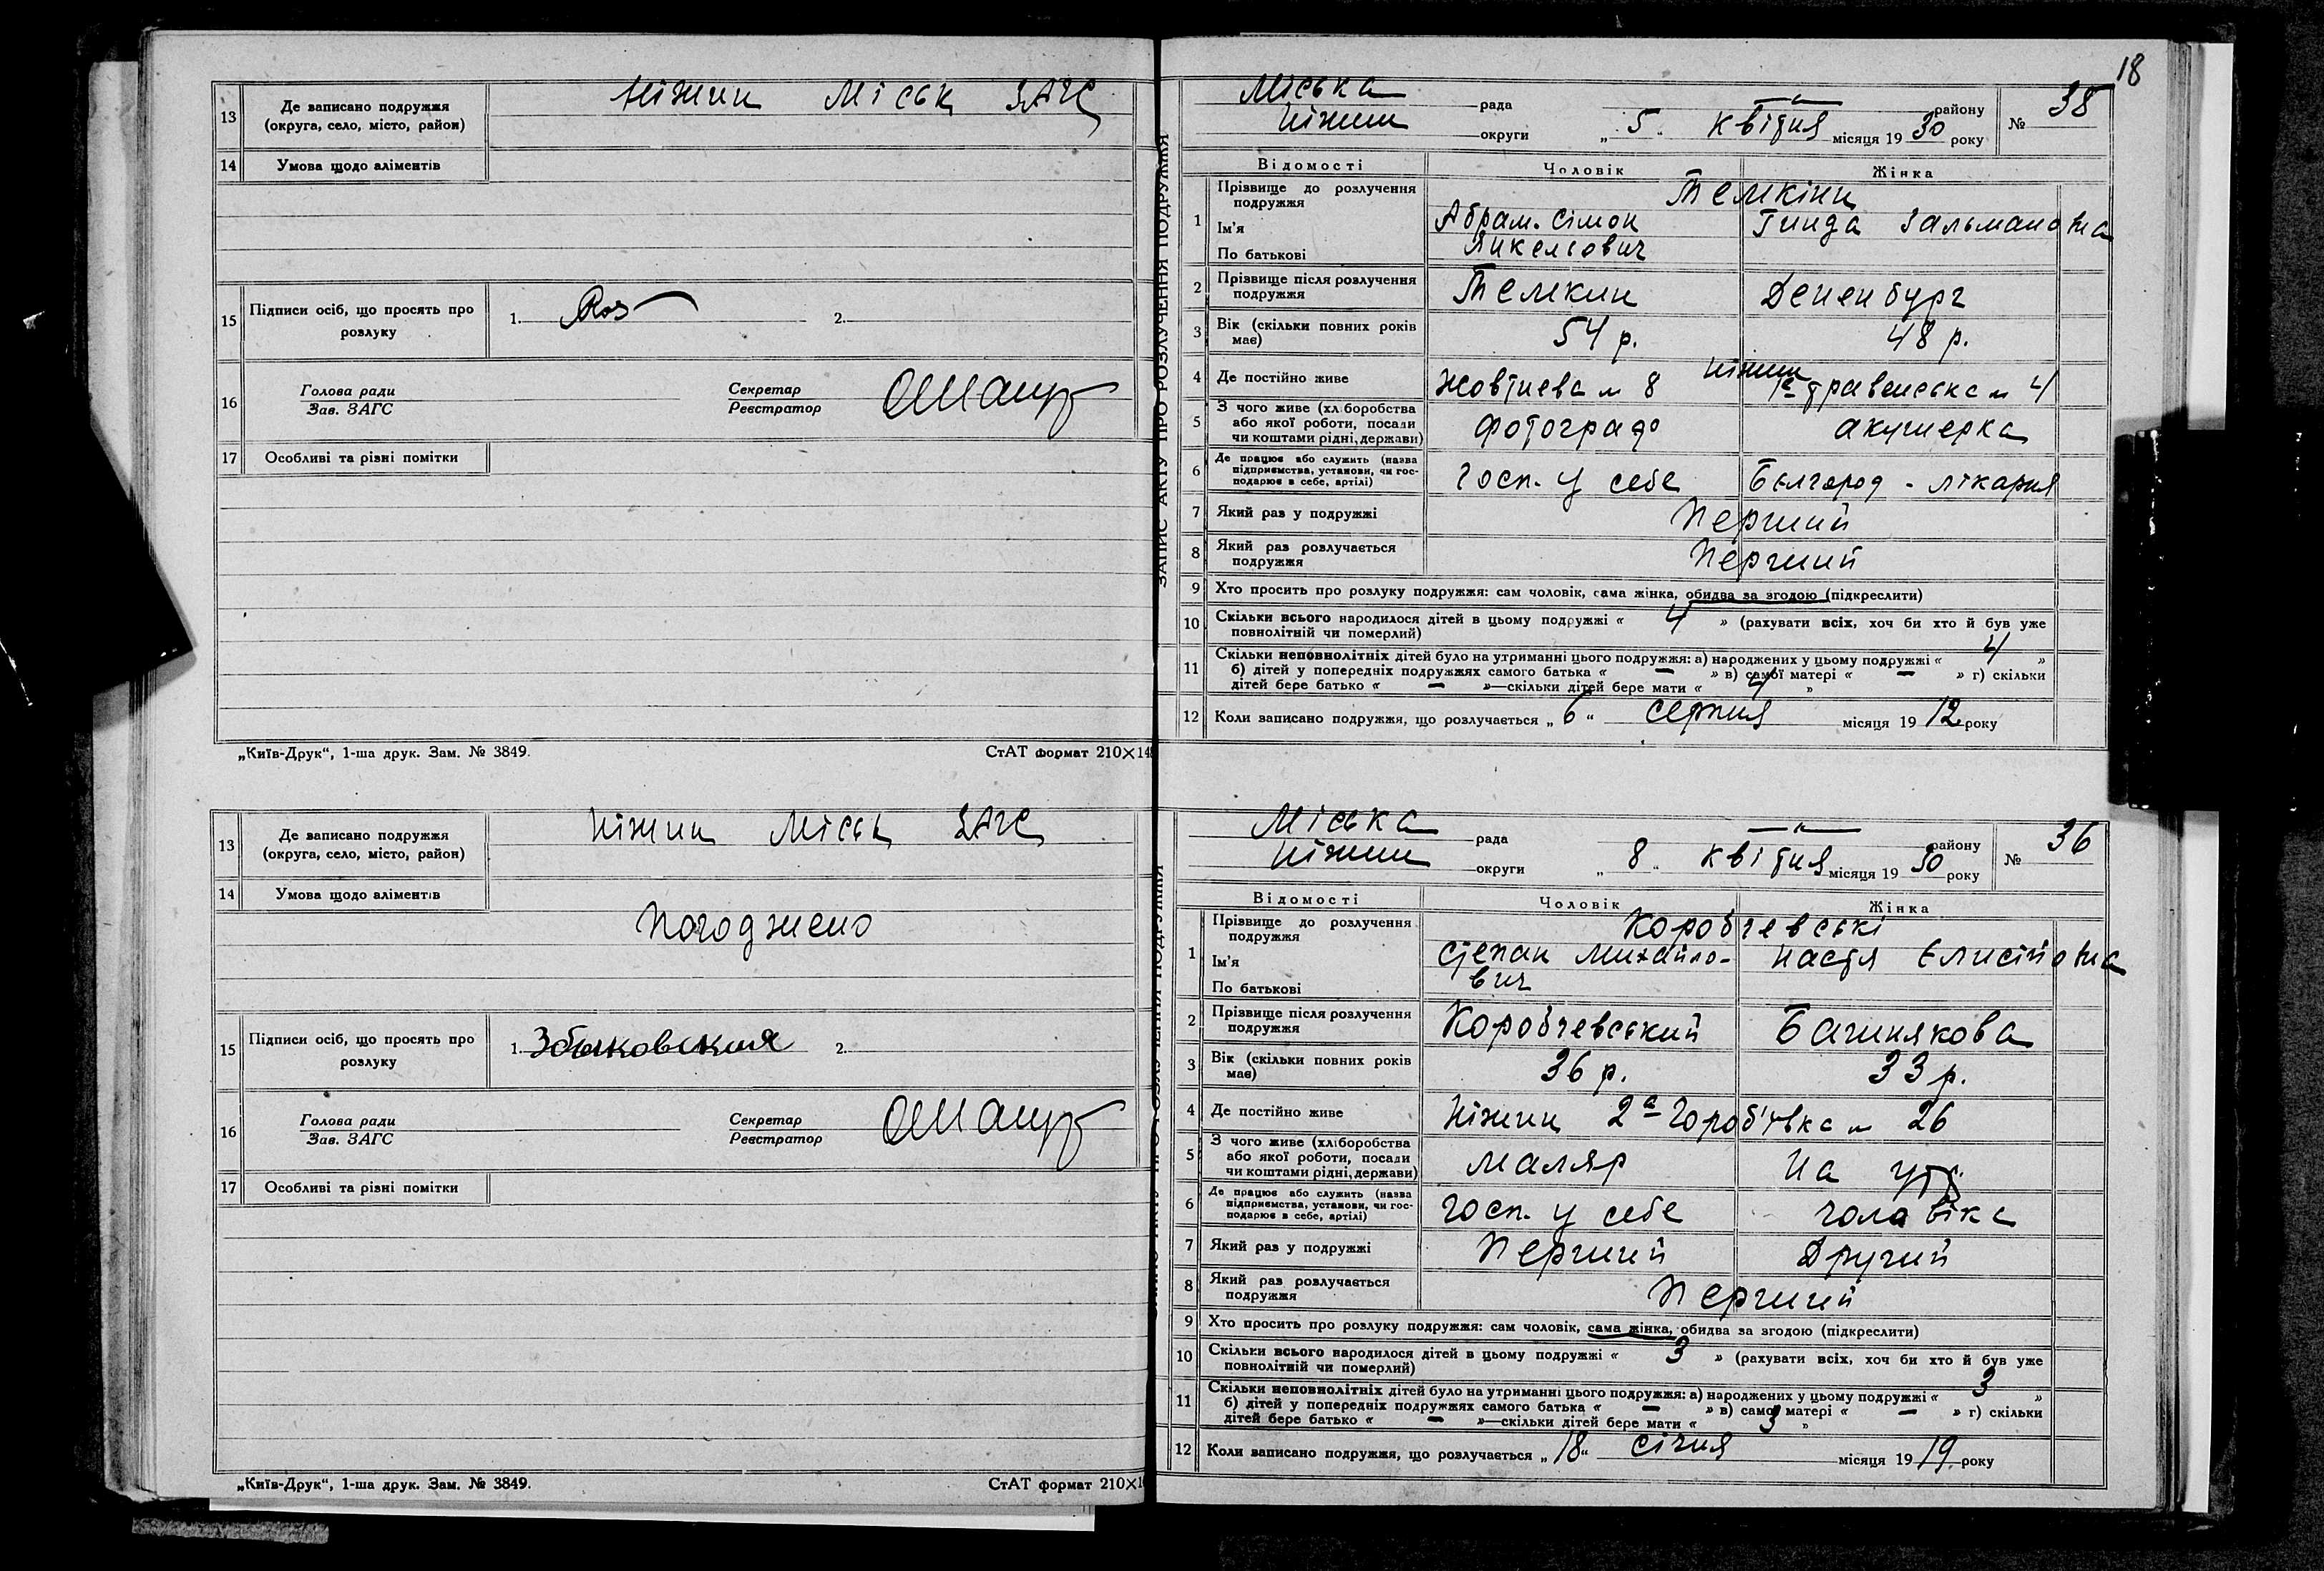 18
13 Де записано подружжя (округа, село, місто, район) Ніжин Міськ ЗАГС
14 Умова щодо аліментів
15 Підписи осіб, що просять про розлуку 1. 2.
16 Голова ради Зав. ЗАГС Секретар Реєстратор
17 Особливі та різні помітки
„Київ-Друк“, 1-ша друк. Зам. № 3849. СтАТ формат 210×148
ЗАПИС АКТУ ПРО РОЗЛУЧЕННЯ ПОДРУЖЖЯ
Міська рада — району № 38
Ніжин округи „ 5 “ квітня місяця 19 30 року
Відомості Чоловік Жінка
1 Прізвище до розлучення подружжя Темкіни
Ім'я Абрам-Сімон Гинда Зальмановна
По батькові Янкельович
2 Прізвище після розлучення подружжя Темкин Дененбург
3 Вік (скільки повних років має) 54 р. 48 р.
4 Де постійно живе Ніжин Жовтнева № 8 1а травенська № 4
5 З чого живе (хліборобства або якої роботи, посади чи коштами рідні, держави) фотограф акушерка
6 Де працює або служить (назва підприємства, установи, чи господарює в себе, артілі) госп. у себе Белгород - лікарня
7 Який раз у подружжі Перший
8 Який раз розлучається подружжя Перший
9 Хто просить про розлуку подружжя: сам чоловік, сама жінка, обидва за згодою (підкреслити)
10 Скільки всього народилося дітей в цьому подружжі « 4 » (рахувати всіх, хоч би хто й був уже
повнолітній чи померлий)
11 Скільки неповнолітніх дітей було на утриманні цього подружжя: а) народжених у цьому подружжі « 4 »
б) дітей у попередніх подружжях самого батька « — » в) самої матері « — » г) скільки
дітей бере батько « — »—скільки дітей бере мати « 4 »
12 Коли записано подружжя, що розлучається „ 6 “ серпня місяця 19 12 року
13 Де записано подружжя (округа, село, місто, район) Ніжин Міськ ЗАГС
14 Умова щодо аліментів
Погоджено
15 Підписи осіб, що просять про розлуку 1. 2.
16 Голова ради Зав. ЗАГС Секретар Реєстратор
17 Особливі та різні помітки
„Київ-Друк“, 1-ша друк. Зам. № 3849. СтАТ формат 210×1
Міська рада — району № 36
Ніжин округи „ 8 “ квітня місяця 19 30 року
Відомості Чоловік Жінка
1 Прізвище до розлучення подружжя Коробчевські
Ім'я Степан Михайло- Настя Єлисійовна
По батькові вич
2 Прізвище після розлучення подружжя Коробчевський Башнякова
3 Вік (скільки повних років має) 36 р. 33 р.
4 Де постійно живе Ніжин 2а Гороб'івка № 26
5 З чого живе (хліборобства або якої роботи, посади чи коштами рідні, держави) маляр на утр.
6 Де працює або служить (назва підприємства, установи, чи господарює в себе, артілі) госп. у себе чоловіка
7 Який раз у подружжі Перший Другий
8 Який раз розлучається подружжя Перший
9 Хто просить про розлуку подружжя: сам чоловік, сама жінка, обидва за згодою (підкреслити)
10 Скільки всього народилося дітей в цьому подружжі « 3 » (рахувати всіх, хоч би хто й був уже
повнолітній чи померлий)
11 Скільки неповнолітніх дітей було на утриманні цього подружжя: а) народжених у цьому подружжі « 3 »
б) дітей у попередніх подружжях самого батька « — » в) самої матері « — » г) скільки
дітей бере батько « — »—скільки дітей бере мати « 3 »
12 Коли записано подружжя, що розлучається „ 18 “ січня місяця 19 19 року